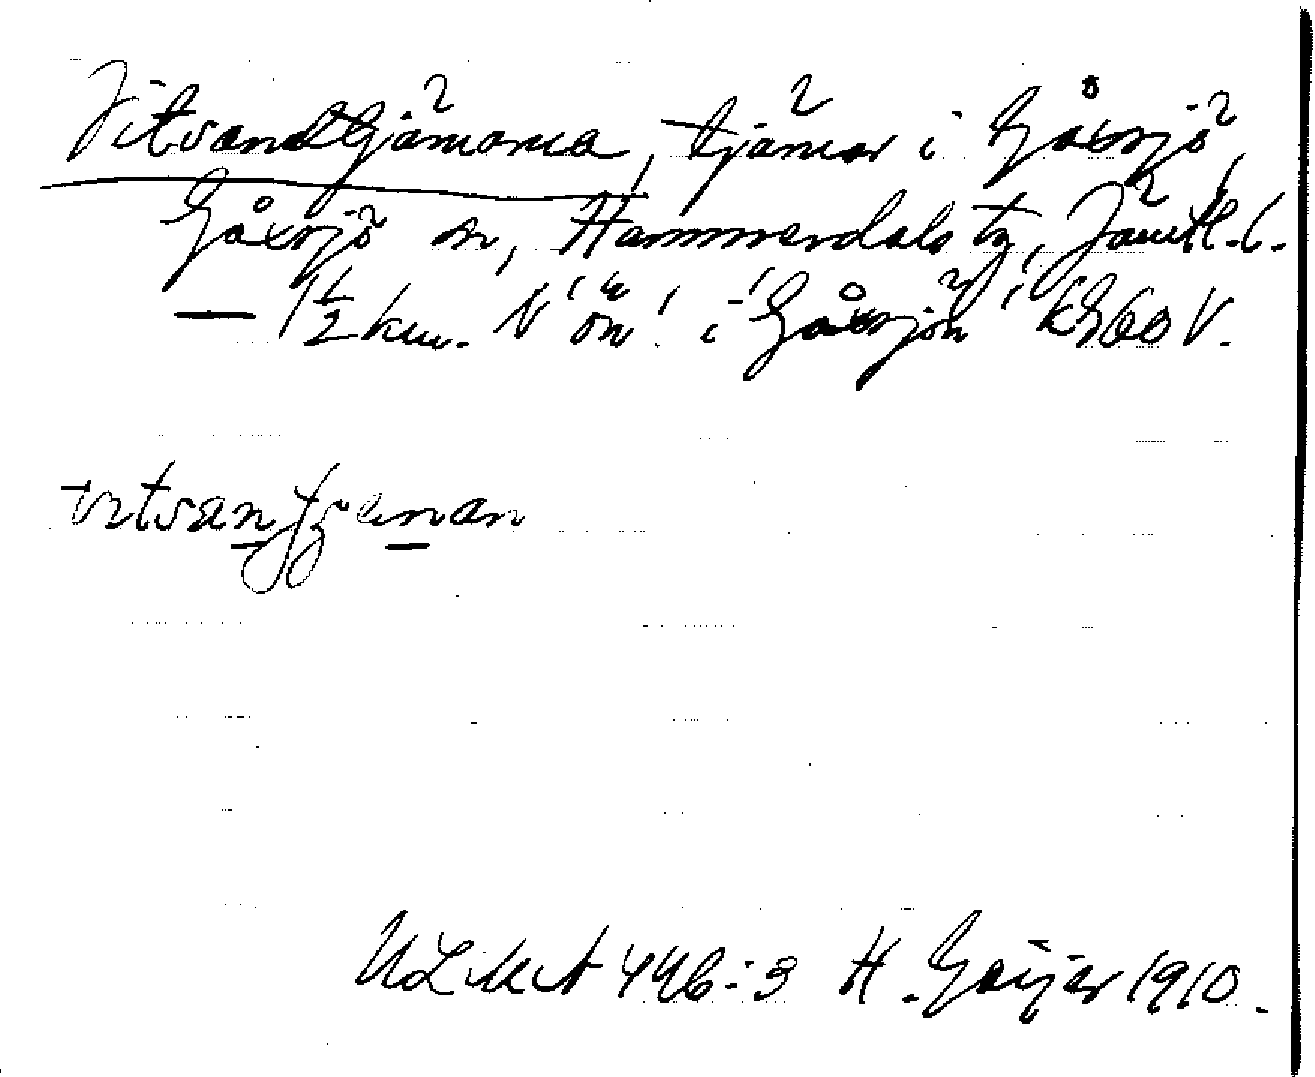 Vitsandtjärnarna, tjärnar i Gåxsjö,
Gåxsjö sn, Hammerdals tg, Jämtl. l.
— 1 1/2 km. N 'ön' i 'Gåxsjön' KG60 V.
vitsantjenan
ULMA 446:3 H. Geijer 1910.